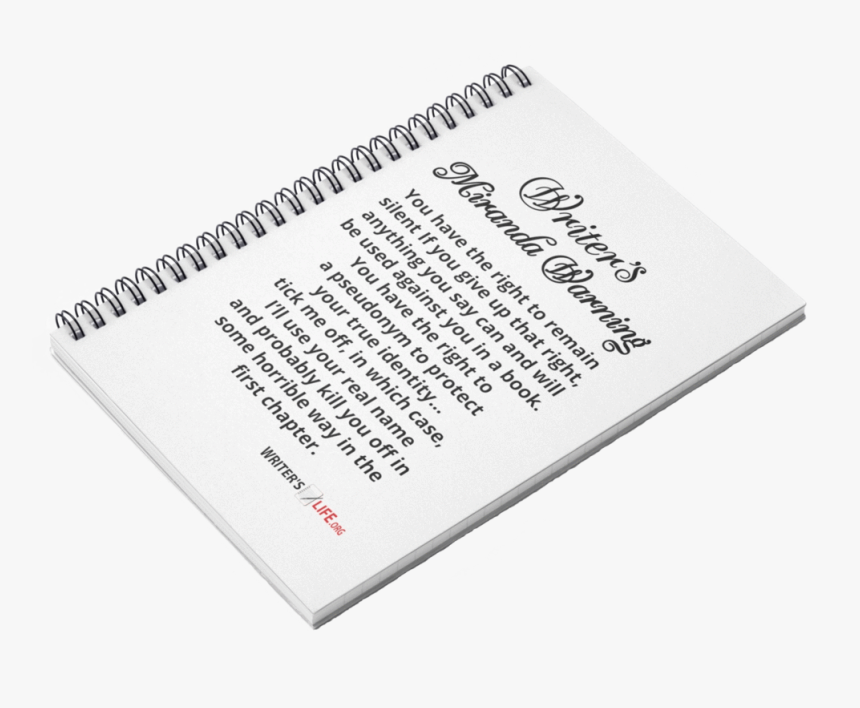 Writer's
Miranda Warning
You have the right to remain
silent If you give up that right,
anything you say can and will
be used against you in a book.
You have the right to
a pseudonym to protect
your true identity...
tick me off, in which case,
I'll use your real name
and probably kill you off in
some horrible way in the
first chapter.
WRITER'S LIFE.ORG